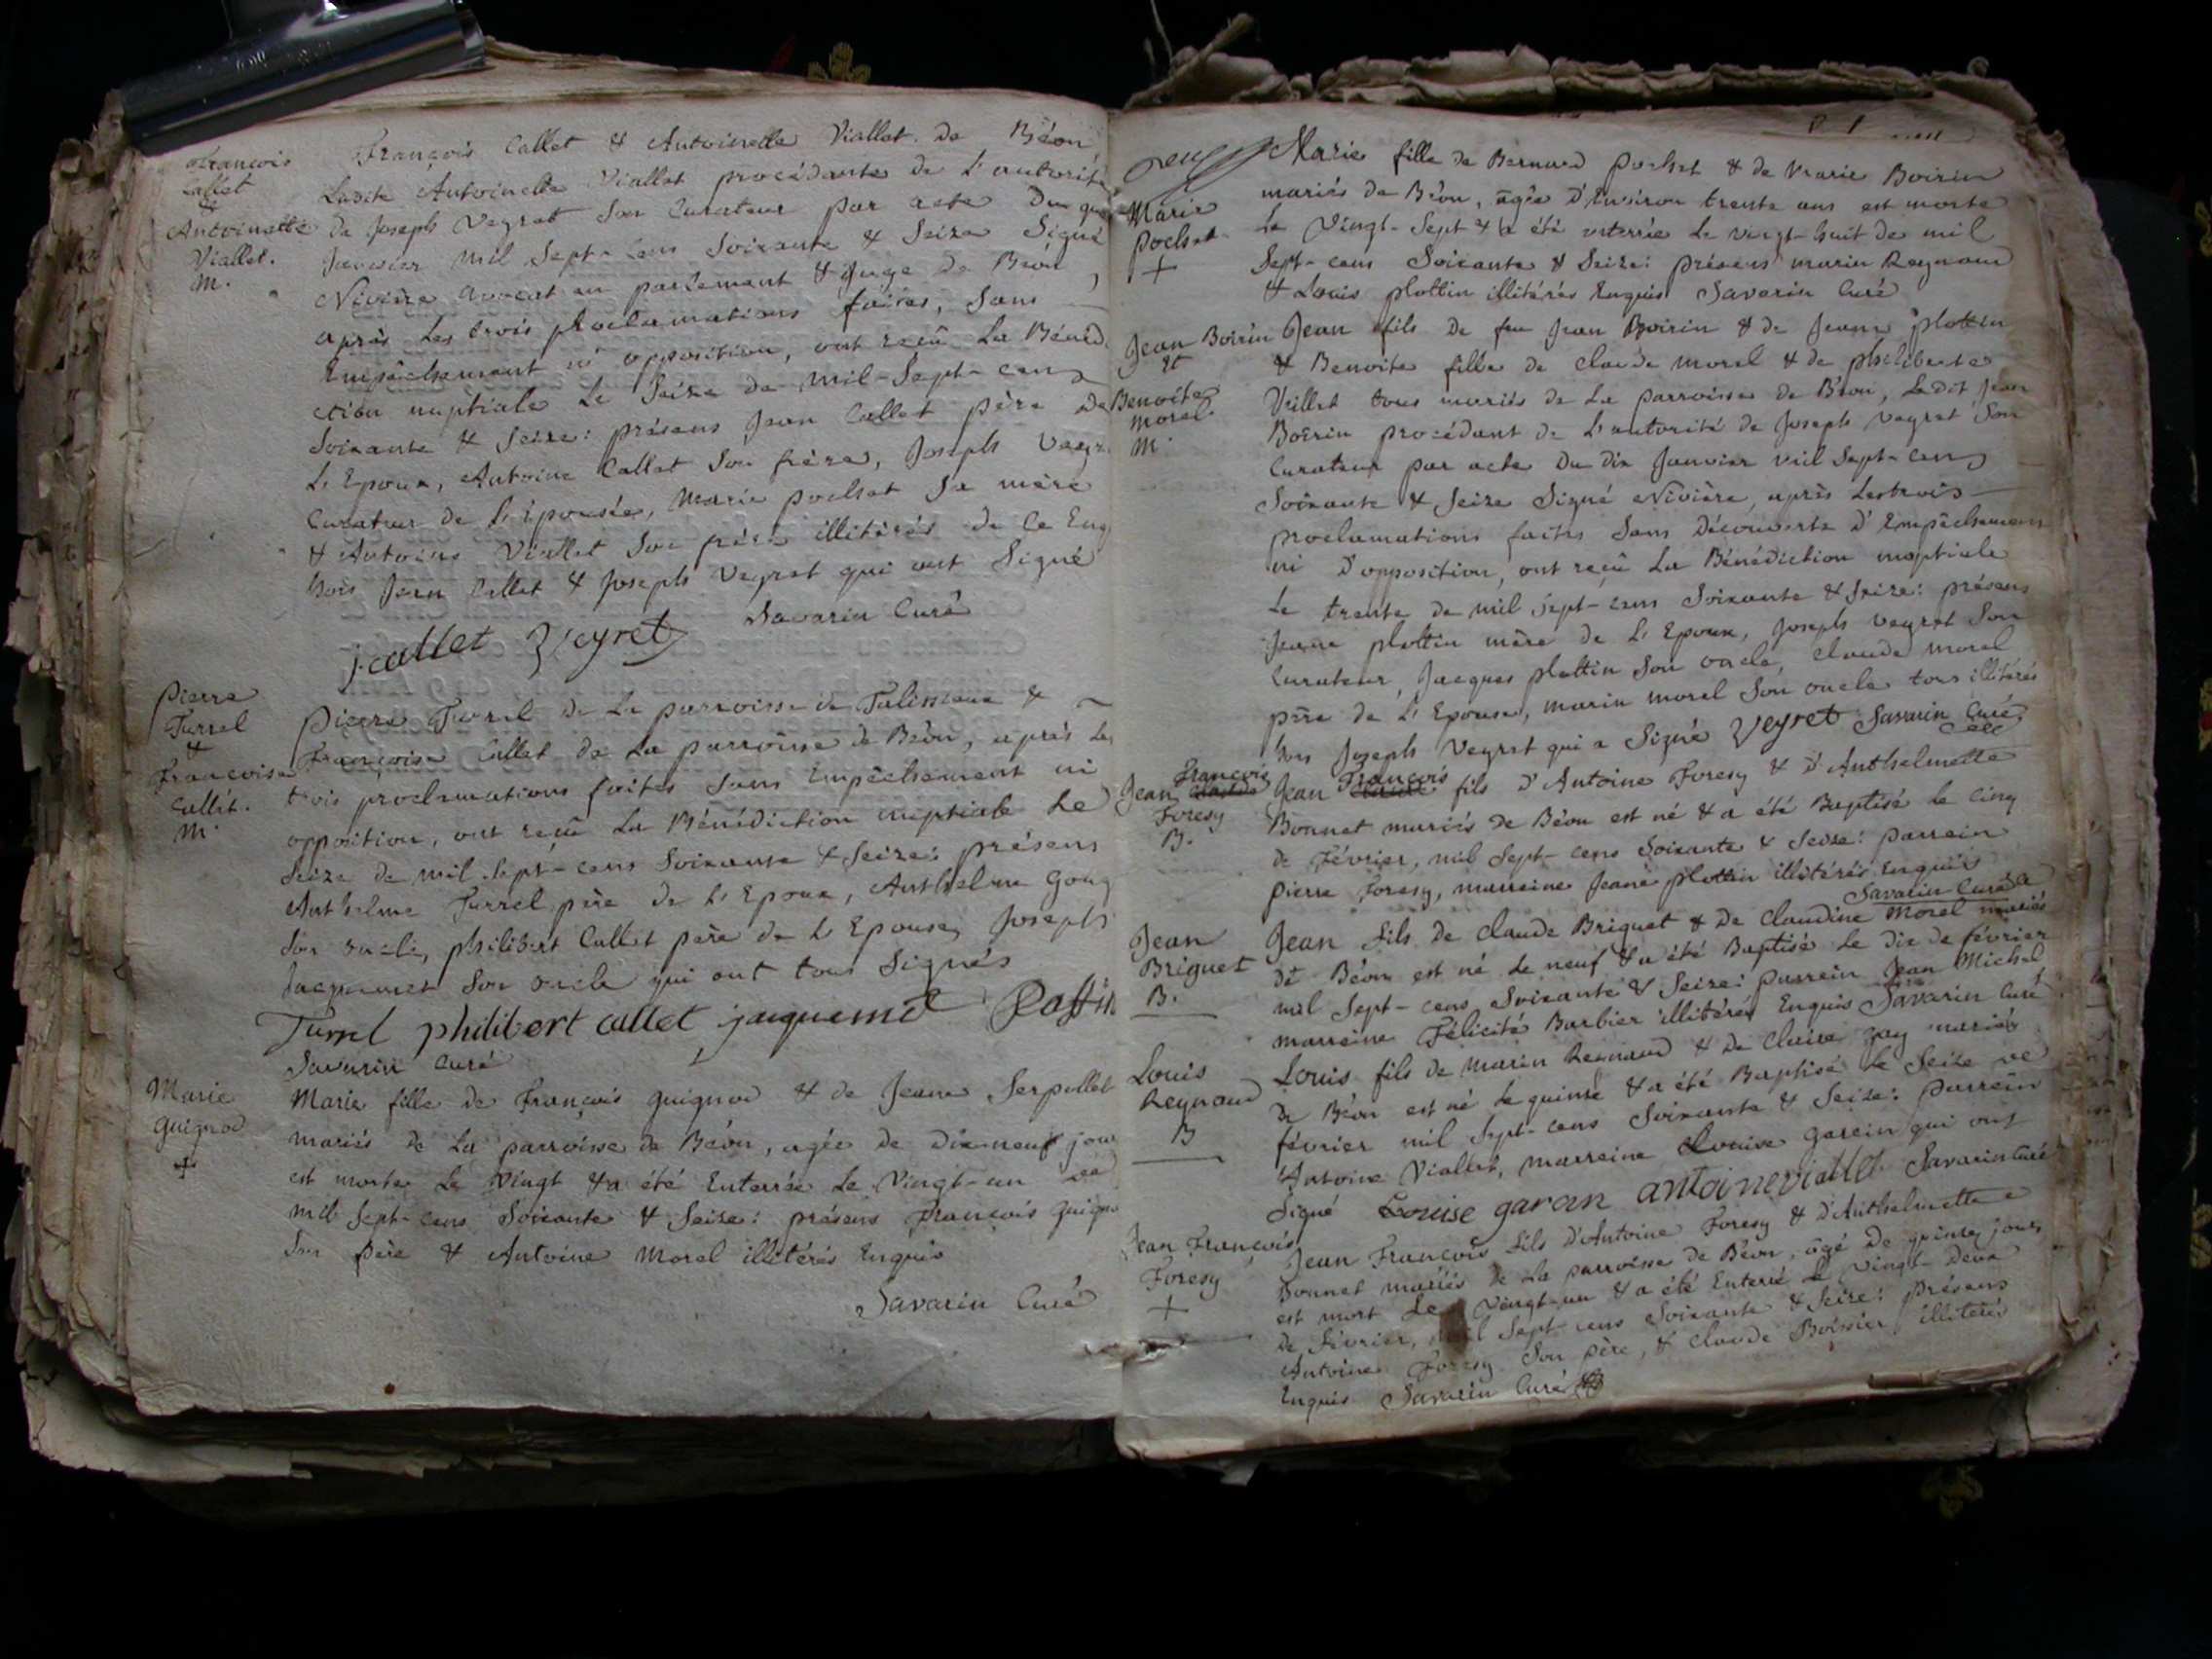 François
Callet
&
Antoinette
Viallet.
M.
François Callet & Antoinette Viallet de Béon
Ladite Antoinette Viallet procédante de L'autorité
de Joseph Veyret son Curateur par acte du
Janvier mil Sept-Cens Soixante & Seize Signé
Nivière avocat en parlement & Juge de Béon,
après Les trois proclamations faites, Sans
Empêchement ni opposition, ont reçû La Bénéd
ction nuptiale Le Seize de mil-Sept-cens
Soixante & Seize: présens Jean Callet père de
L'Epoux, Antoine Callet Son frère, Joseph Veyr
Curateur de L'Epousée, Marie pochet Sa mère
& Antoine Viallet Son frère illitérés de Ce Enq
hors Jean Callet & Joseph Veyret qui ont Signé
Savarin Curé
j. callet Veyret
Pierre
Turrel
&
Françoise
Callet.
M.
Pierre Turrel de La parroisse de Talissieux &
Françoise Callet de La parroisse de Béon, après Les
trois proclamations faites Sans Empêchement ni
opposition, ont reçû La Bénédiction nuptiale Le
Seize de mil-Sept-cens Soixante & Seize: présens
Anthelme Turrel père de L'Epoux, Anthelme Gouj
Son oncle, philibert Callet père de L'Epouse, Joseph
Jacquemet Son oncle qui ont tous Signés
Turrel philibert callet jacquemet
Savarin Curé
Marie
Guignod
+
Marie fille de François Guignod & de Jeanne Serpollet
mariés de La parroisse de Béon, agée de dix-neuf jour
est morte Le Vingt & a été Enterrée Le Vingt-un de
mil Sept-cens Soixante & Seize: présens François Guigno
Son père & Antoine Morel illitérés Enquis
Savarin Curé
Marie
pochet
+
Marie fille de Bernard pochet & de Marie Boirin
mariés de Béon, agée d'Environ trente ans est morte
Le Vingt-Sept & a été enterrée Le vingt-huit de mil
Sept-cens Soixante & Seize: présens marin Reynaud
& Louis plottin illitérés Enquis Savarin Curé
Jean Boirin
Et
Benoite
Morel
M.
Jean fils de feu Jean Boirin & de Jeanne plottin
& Benoite fille de Claude morel & de philiberte
Veillet tous mariés de La parroisse de Béon, Ledit Jean
Boirin procédant de L'autorité de Joseph Veyret Son
Curateur par acte du dix Janvier mil Sept-cens
Soixante & Seize Signé Nivière, après Les trois
proclamations faites Sans découverte d'Empêchement
ni d'opposition, ont reçû La Bénédiction nuptiale
Le trente de mil Sept-cens Soixante & Seize: présens
Jeanne plottin mère de L'Epoux, Joseph Veyret Son
Curateur, Jacques plottin Son oncle, Claude morel
père de L'Epouse, marin morel Son oncle tous illitérés
hors Joseph Veyret qui a Signé Veyret Savarin Curé
François
Jean Claude
Foresy
B.
François
Jean Claude fils d'Antoine Foresy & d'Anthelmette
Bonnet mariés de Béon est né & a été Baptisé Le Cinq
de Février, mil Sept-cens Soixante & Seize: parrein
pierre Foresy, marreine Jeane plottin illitérés Enquis
Savarin Curé
Jean
Briguet
B.
Jean fils de Claude Briguet & de Claudine Morel mariés
de Béon est né Le neuf & a été Baptisé Le dix de février
mil Sept-cens Soixante & Seize: parrein Jean Michel
marreine Félicité Barbier illitérés Enquis Savarin Curé
Louis
Reynaud
B
Louis fils de marin Reynaud & de Claire gay mariés
de Béon est né Le quinze & a été Baptisé Le Seize de
février mil Sept-cens Soixante & Seize: parrein
Antoine Viallet, marreine Louise garein qui ont
Signé Louise garan antoine viallet Savarin Curé
Jean François
Foresy
+
Jean François fils d'Antoine Foresy & d'Anthelmette
Bonnet mariés de La parroisse de Béon, agé de quinze jours
est mort Le Vingt-un & a été Enterré Le Vingt-Deux
de Février, mil Sept-cens Soixante & Seize: présens
Antoine Foresy Son père, & Claude Boirin illitérés
Enquis Savarin Curé